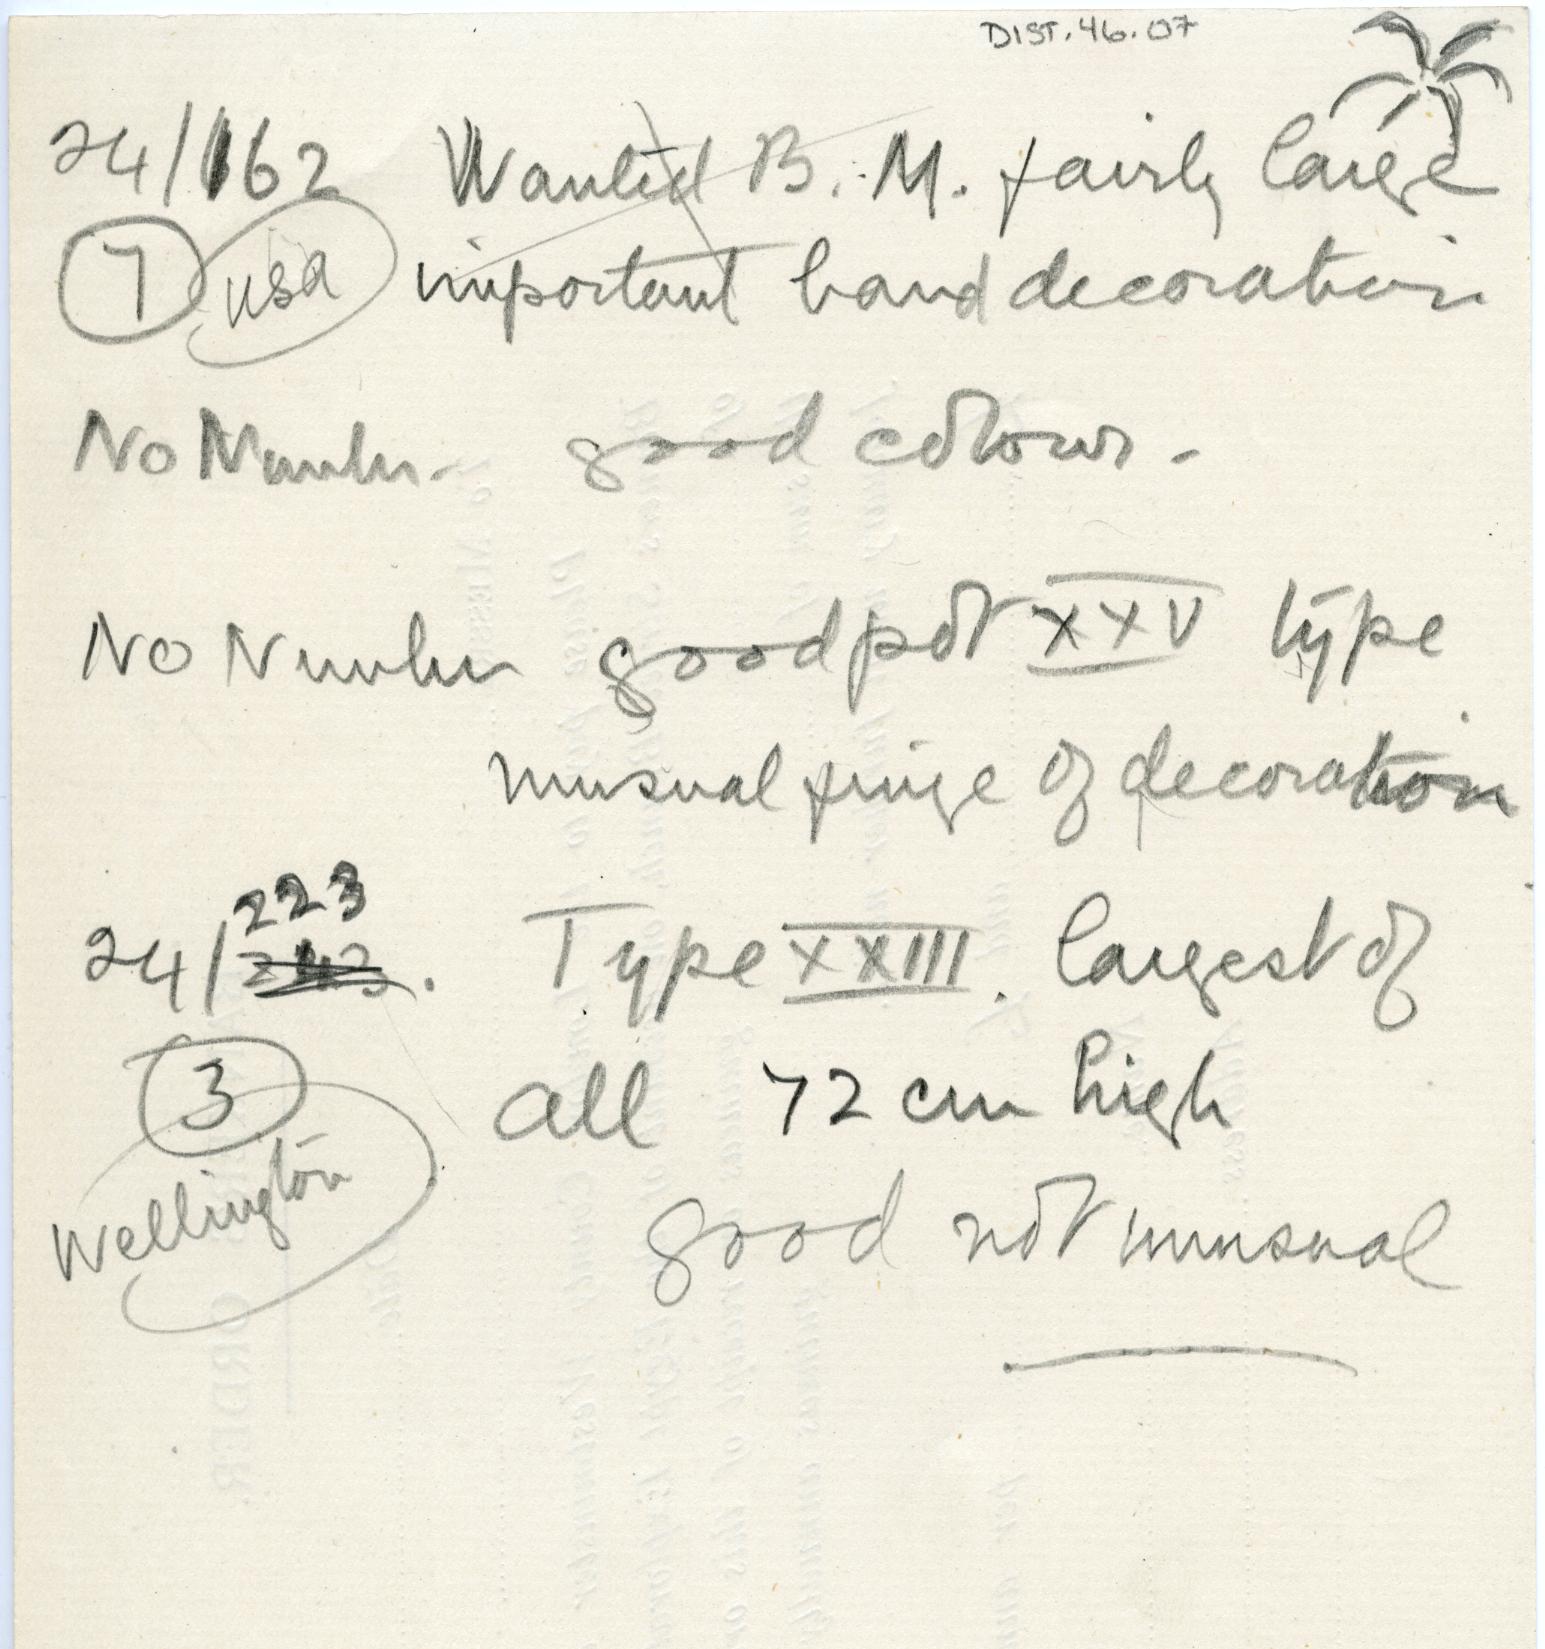 DIST.46.07
24/162 Wanted B.M. fairly large
7 USA important hand decoration
No Number. good colour.
No Number good pot XXV type
unusual fringe of decoration
223
24/243. Type XXIII. largest of
3 all 72 cm high
Wellington
good not unusual